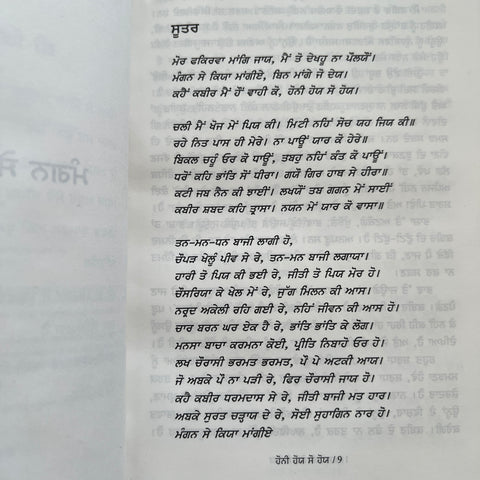 ਸੂਤਰ
ਮੋਰ ਫਕਿਰਵਾ ਮਾਂਗਿ ਜਾਯ, ਮੈਂ ਤੋ ਦੇਖਹੂ ਨਾ ਪੌਲਯੌਂ।
ਮੰਗਨ ਸੇ ਕਿਯਾ ਮਾਂਗੀਏ, ਬਿਨ ਮਾਂਗੇ ਜੋ ਦੇਯ।
ਕਹੈਂ ਕਬੀਰ ਮੈਂ ਹੌਂ ਵਾਹੀ ਕੋ, ਹੋਨੀ ਹੋਯ ਸੋ ਹੋਯ।
ਚਲੀ ਮੈਂ ਖੋਜ ਮੇਂ ਪਿਯ ਕੀ। ਮਿਟੀ ਨਹਿਂ ਸੋਚ ਯਹ ਜਿਯ ਕੀ॥
ਰਹੇ ਨਿਤ ਪਾਸ ਹੀ ਮੇਰੇ। ਨਾ ਪਾਊਂ ਯਾਰ ਕੋ ਹੇਰੇ॥
ਬਿਕਲ ਚਹੂੰ ਓਰ ਕੋ ਧਾਊਂ, ਤਬਹੁ ਨਹਿਂ ਕੰਤ ਕੋ ਪਾਊਂ।
ਧਰੋਂ ਕਹਿ ਭਾਂਤਿ ਸੋਂ ਧੀਰਾ। ਗਯੌ ਗਿਰ ਹਾਥ ਸੇ ਹੀਰਾ॥
ਕਟੀ ਜਬ ਨੈਨ ਕੀ ਝਾਈਂ। ਲਖਯੌਂ ਤਬ ਗਗਨ ਮੇਂ ਸਾਈਂ
ਕਬੀਰ ਸ਼ਬਦ ਕਹਿ ਤ੍ਰਾਸਾ। ਨਯਨ ਮੇਂ ਯਾਰ ਕੋ ਵਾਸਾ॥
ਤਨ-ਮਨ-ਧਨ ਬਾਜੀ ਲਾਗੀ ਹੋ,
ਚੌਪੜ ਖੇਲੂੰ ਪੀਵ ਸੇ ਰੇ, ਤਨ-ਮਨ ਬਾਜੀ ਲਗਾਯਾ।
ਹਾਰੀ ਤੋ ਪਿਯ ਕੀ ਭਈ ਰੇ, ਜੀਤੀ ਤੋ ਪਿਯ ਮੋਰ ਹੋ।
ਚੌਸਰਿਯਾ ਕੇ ਖੇਲ ਮੇਂ ਰੇ, ਜੁੱਗ ਮਿਲਨ ਕੀ ਆਸ।
ਨਰ੍ਦ ਅਕੇਲੀ ਰਹਿ ਗਈ ਰੇ, ਨਹਿਂ ਜੀਵਨ ਕੀ ਆਸ ਹੋ।
ਚਾਰ ਬਰਨ ਘਰ ਏਕ ਹੈ ਰੇ, ਭਾਂਤਿ ਭਾਂਤਿ ਕੇ ਲੋਗ।
ਮਨਸਾ ਬਾਚਾ ਕਰਮਨਾ ਕੋਈ, ਪ੍ਰੀਤਿ ਨਿਬਾਹੋ ਓਰ ਹੋ।
ਲਖ ਚੌਰਾਸੀ ਭਰਮਤ ਭਰਮਤ, ਪੌ ਪੇ ਅਟਕੀ ਆਯ।
ਜੋ ਅਬਕੇ ਪੌ ਨਾ ਪੜੀ ਰੇ, ਫਿਰ ਚੌਰਾਸੀ ਜਾਯ ਹੋ।
ਕਹੈ ਕਬੀਰ ਧਰਮਦਾਸ ਸੇ ਰੇ, ਜੀਤੀ ਬਾਜੀ ਮਤ ਹਾਰ।
ਅਬਕੇ ਸੁਰਤ ਚੜ੍ਹਾਯ ਦੇ ਰੇ, ਸੋਈ ਸੁਹਾਗਿਨ ਨਾਰ ਹੋ।
ਮੰਗਨ ਸੇ ਕਿਯਾ ਮਾਂਗੀਏ
ਹੋਨੀ ਹੋਯ ਸੋ ਹੋਯ / 9